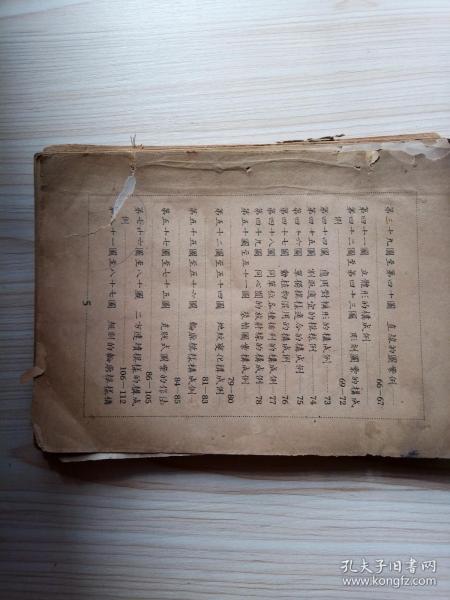 第三十九圖至第四十圖 直線的圖案例……
66—67
第四十一圖 立體形的構成例
第四十二圖至第四十三圖 雕刻圖案的構成
例 69—72
第四十四圖 應用對稱形的構成例 73
第四十五圖 割取適宜的模樣例 74
第四十六圖 單獨模樣適合的構成例 75
第四十七圖 動植物混用的構成例 76
第四十八圖 同單位各種排列的構成例 77
第四十九圖 同心圓的放射線的構成例 78
第五十圖至五十一圖 裝飾圖案例
79—80
第五十二圖至五十四圖 地紋變化構成例
81—83
第五十五圖至五十六圖 輪廓模樣構成例
84—85
第五十七圖至七十五圖 式圖案的作法
86—105
第七十六圖至八十圖 二方連續模樣的構成
例 106—112
第八十一圖至八十七圖 的輪廓模樣構
5
孔夫子旧书网
www.kongfz.com